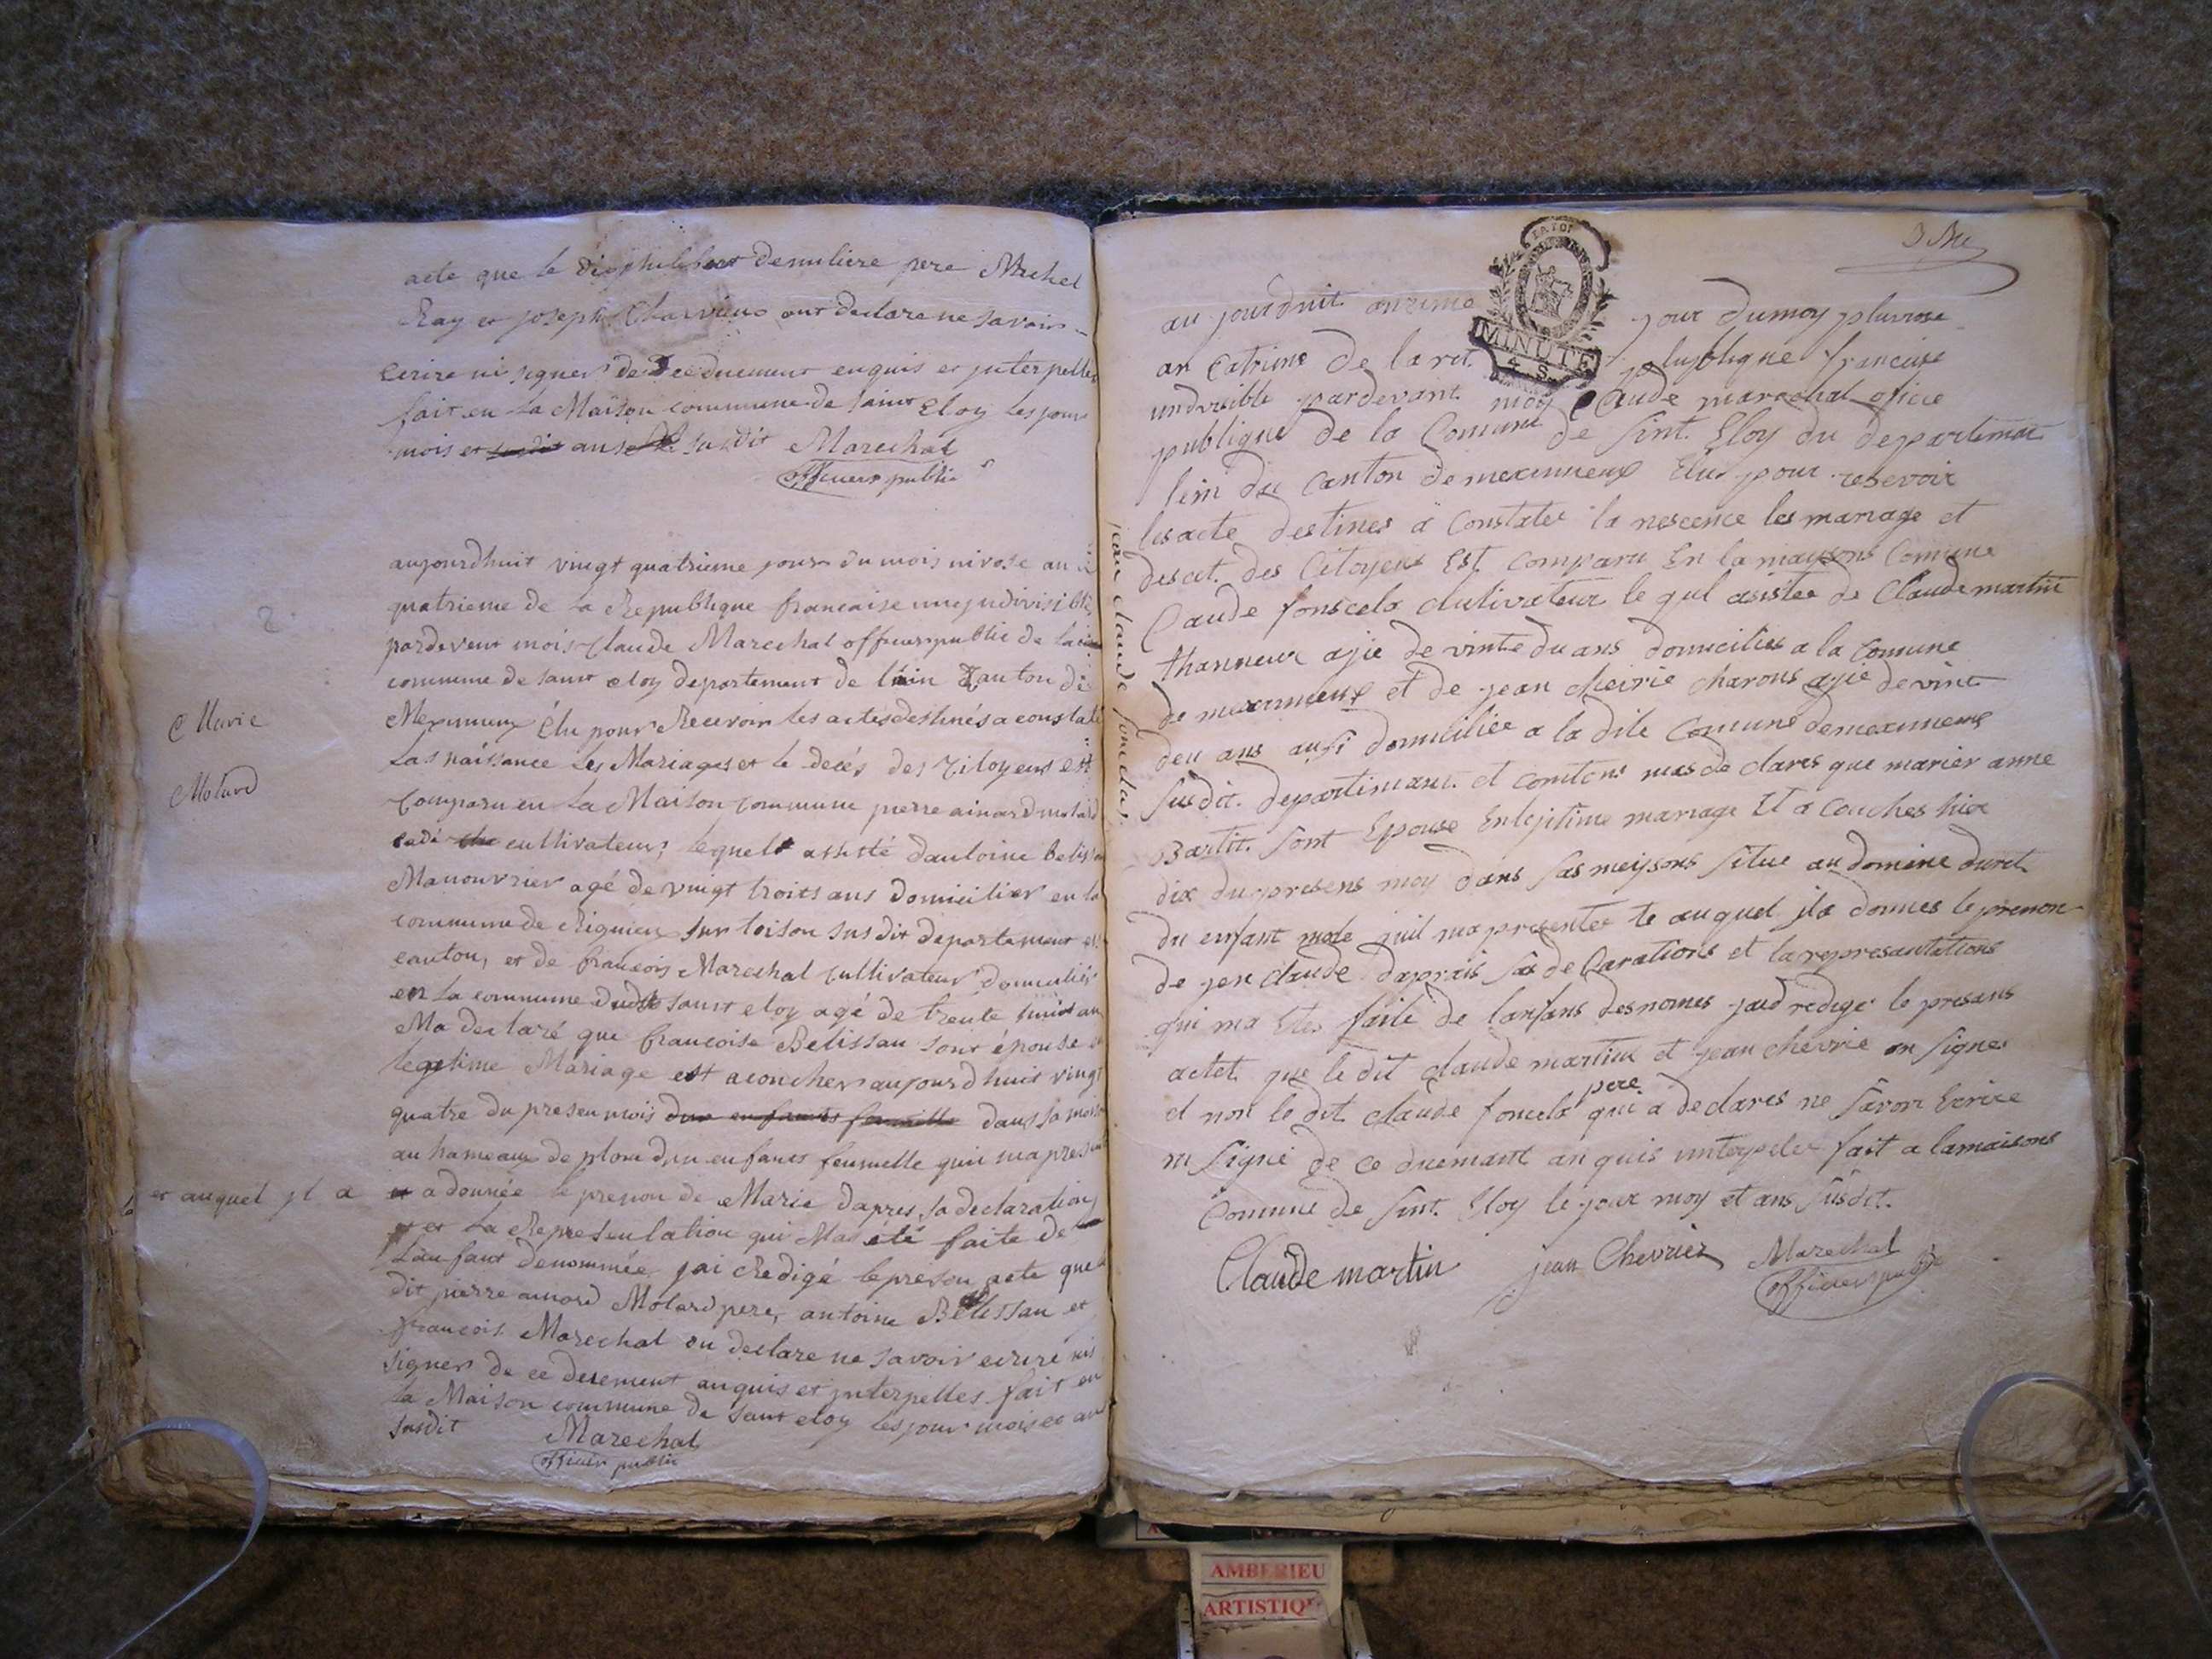 acte que le demuliere pere Michel
Ray et joseph Charvieux ont declare ne savoir
ecrire ni signer de ce duement enquis et jnterpelles
fait en la Maison commune de saint Eloy les jour
mois et susdit ans susdit Marechal
officier public
aujourdhuit vingt quatrieme jour du mois nivose an
quatrieme de la Republique francaise une jndivisible
pardevent mois Claude Marechal officier public de la
commune de saint eloy departement de l'ain Canton de
Meximieux Élu pour Recevoir les actes destinés a constate
Marie
Molard
las naissance les Mariages et le decés des Citoyens est
comparu en la Maison commune pierre ainard molard
cadé cultivateur, lequelt assisté dantoine belissan
Manouvrier agé de vingt troits ans domicilier en la
commune de Rignieu sur toison susdit departement et
canton, et de francois Marechal cultivateur domicilier
en la commune dudit saint eloy agé de trente huit an
Ma declaré que francoise Belissan sont épouse en
legetime Mariage est acoucher aujourdhuit vingt
quatre du presen mois dun enfants femmelle dans sa maison
au hameaux de plom dun enfants femmelle quil ma present
et auquel jl a
a donnée le prenon de Marie dapres sa declaration
et la Representation qui Ma été faite de
Lanfant denommée jai Redigé le presen acte que
dit pierre ainard Molard pere, antoine Belissan et
francois Marechal on declare ne savoir ecrire nis
signer de ce duement anquis et jnterpelles fait en
la Maison commune de saint eloy les jour mois et an
susdit Marechal
officier public
jean claude fonclas
3
PATOI
MINUTE
4 S.
au jourduit onzime jour du moy pluviose
an Catrime de la ret plupligne franceise
undvisible pardevant moy Claude marechal oficie
publique de la Comune de Sint Eloy du departimat
lein du Canton de meximieux Elus pour resevoir
les acte destines a Constater la nescence les mariage et
descet des Citoyens Est Comparu En la maysons Comune
Claude fonscela cultivateur le qul asistee de Claude martin
thanneur ajie de vinte du ans domicilies a la Comune
de meximieux et de jean cheivrie charons ajie de vint
deu ans ausi domiciliee a la dite Comune de meximieux
susdit departimant et Comtons mas de clares que marier anne
Bartit sont Epouse En lejitime mariage Et a Couches hier
dix du presens moy dans sas meysons situe au domine duret
du enfant male quil ma presentee te auquel jla donnes le prenon
de jen claude daprais sa de Clarations et la represantations
qui ma Etes faite de lanfans desnomes jaid redige le presans
actet que le dit claude martin et jean chevrie on signes
et non le dit claude foncela pere qui a declares ne savoir Ecrire
ni signe de ce duemant an quis unterpeler fait a la maisons
Comune de Sint Eloy le jour moy et ans susdit.
Claude martin jean Chevrier Marechal
officier public
AMBERIEU
ARTISTIQ